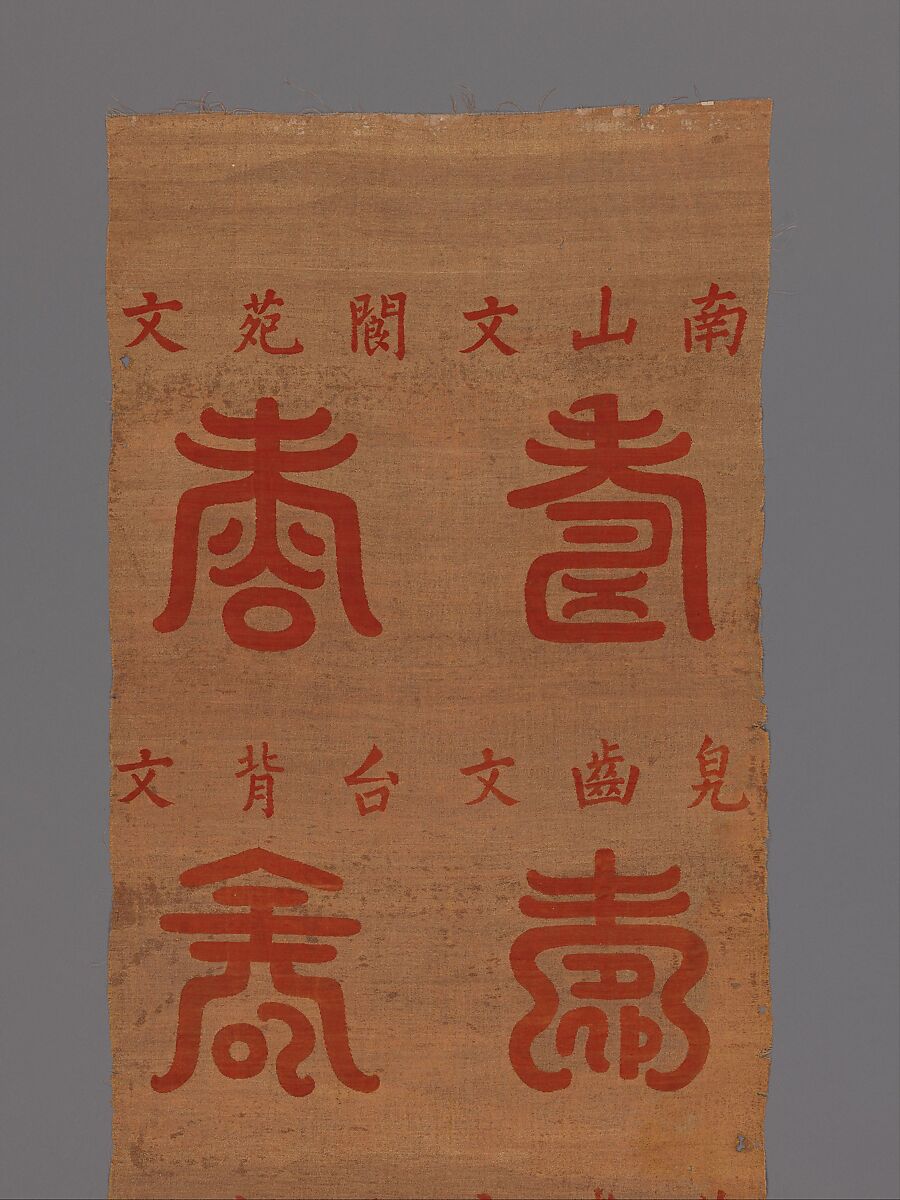 南山文 閬苑文
壽 壽
兒齒文 台背文
壽 壽